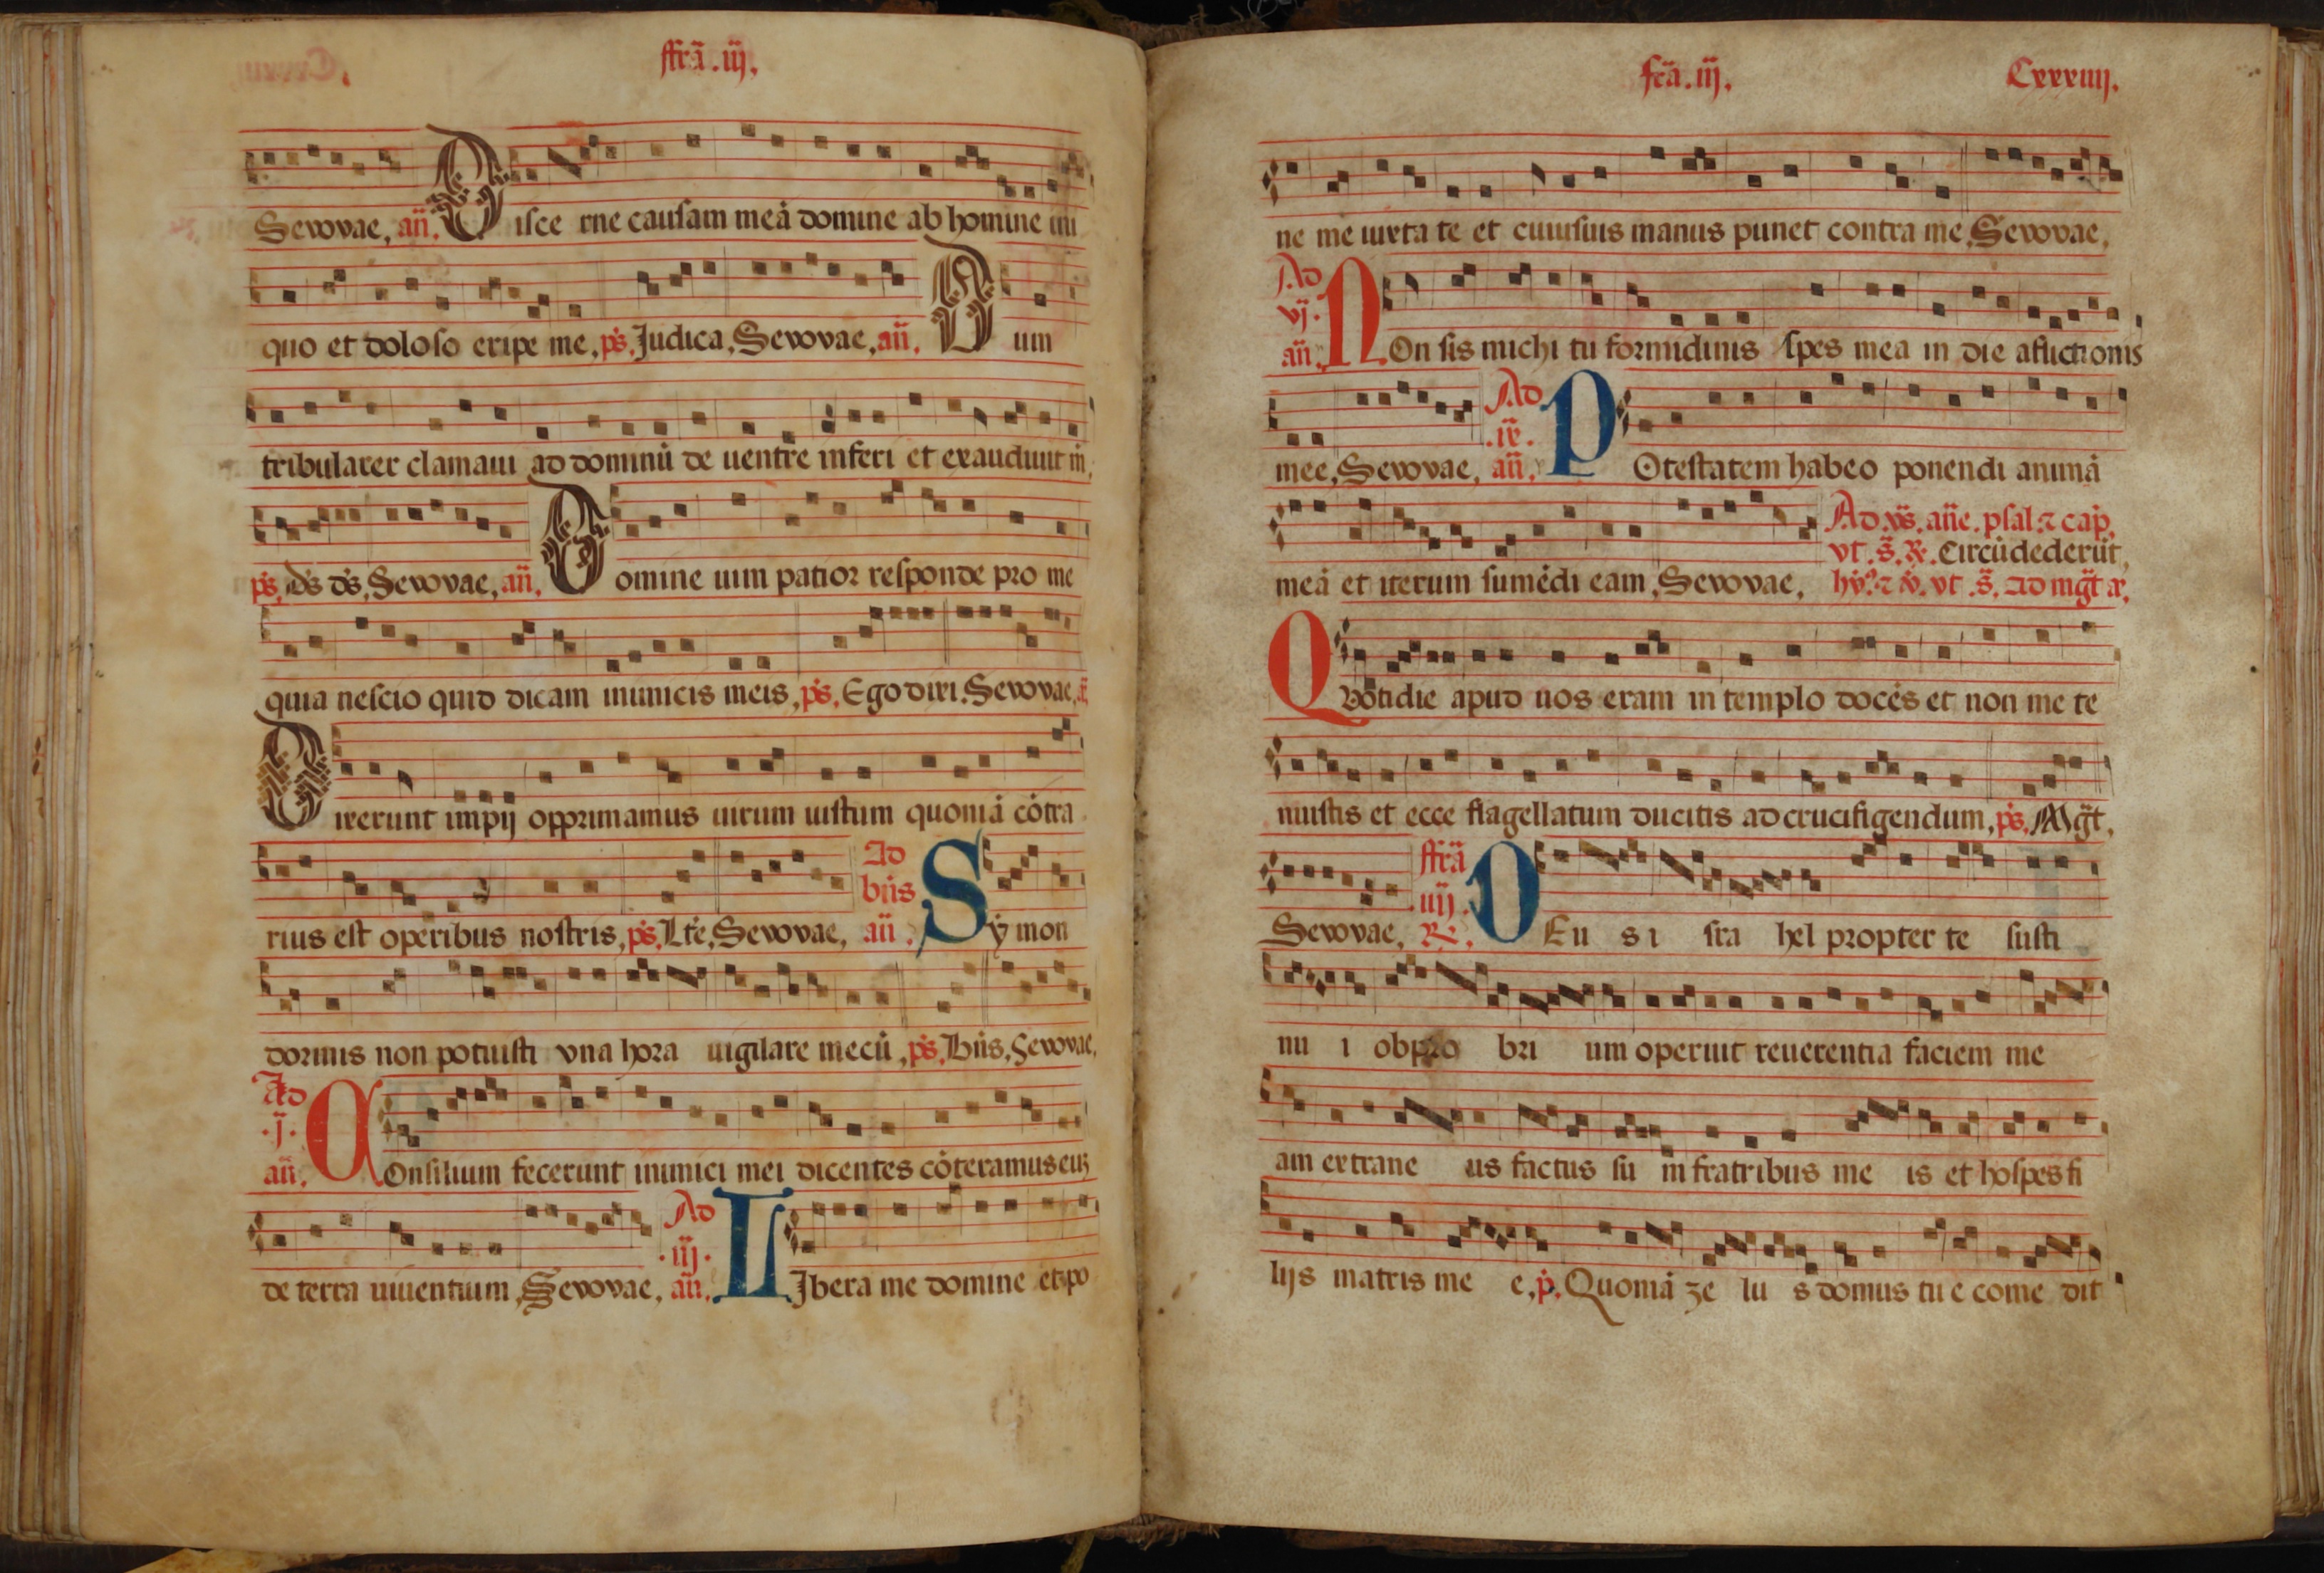 ffrã .iij.
Sevovae, añ. Disce rne causam meã domine ab homine ini
quo et doloso eripe me, ps̃. Judica, Sevovae, añ. Dum
tribularer clamaui ad dominũ de uentre inferi et exaudiuit m̃,
ps̃. ds̃ ds̃, Sevovae, añ. Domine uim patior responde pro me
quia nescio quid dicam inimicis meis, ps̃. Ego dixi. Sevovae, ã
Dixerunt impij opprimamus uirum iustum quoniã cõtra
rius est operibus nostris, ps̃. Lt̃e, Sevovae, Ad bñs añ. Sẏmon
dormis non potuisti vna hora uigilare mecũ, ps̃. Bñs. Sevovae,
Ad .j. añ. Consilium fecerunt inimici mei dicentes cõteramus euȝ
de terra uiuentium, Sevovae, Ad .iij. añ. LJbera me domine et po
fẽa .iij. Cxxxiiij.
ne me iuxta te et cuiusuis manus punet contra me, Sevovae,
Ad vj. añ. NOn sis michi tu formidinis spes mea in die aflictionis
mee, Sevovae, Ad .ix. añ. POtestatem habeo ponendi animã
meã et iterum sumẽdi eam, Sevovae, Ad vs̃. añe. psal. ⁊ cap̃.
vt .s̃. ℟. Circũdederũt,
hỹ? ⁊ ℣. vt .s̃. ad mg̃t ã.
QVõtidie apud uos eram in templo docẽs et non me te
nuistis et ecce flagellatum ducitis ad crucifigendum, ps̃. Mg̃t,
Sevovae, ffrã iiij. ℟. DEu s i sra hel propter te susti
nu i obpro bri um operuit reuerentia faciem me
am extrane us factus su m fratribus me is et hospes fi
lijs matris me e, p̃. Quoniã ze lu s domus tu e come dit